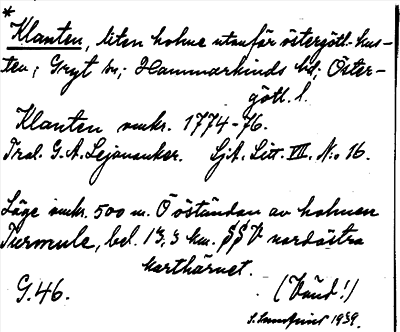 *
Klanten, liten holme utanför östergötl. kus-
ten; Gryt sn; Hammarkinds hd; Öster-
götl. l.
Klanten omkr. 1774-76.
Trol. G. A. Lejonanker. SjA. Litt. VII. N:o 16.
Läge omkr. 500 m. O öständan av holmen
Turmule, bel. 13,3 km. SSV nordöstra
karthörnet.
G.46. (Vänd!)
1939.